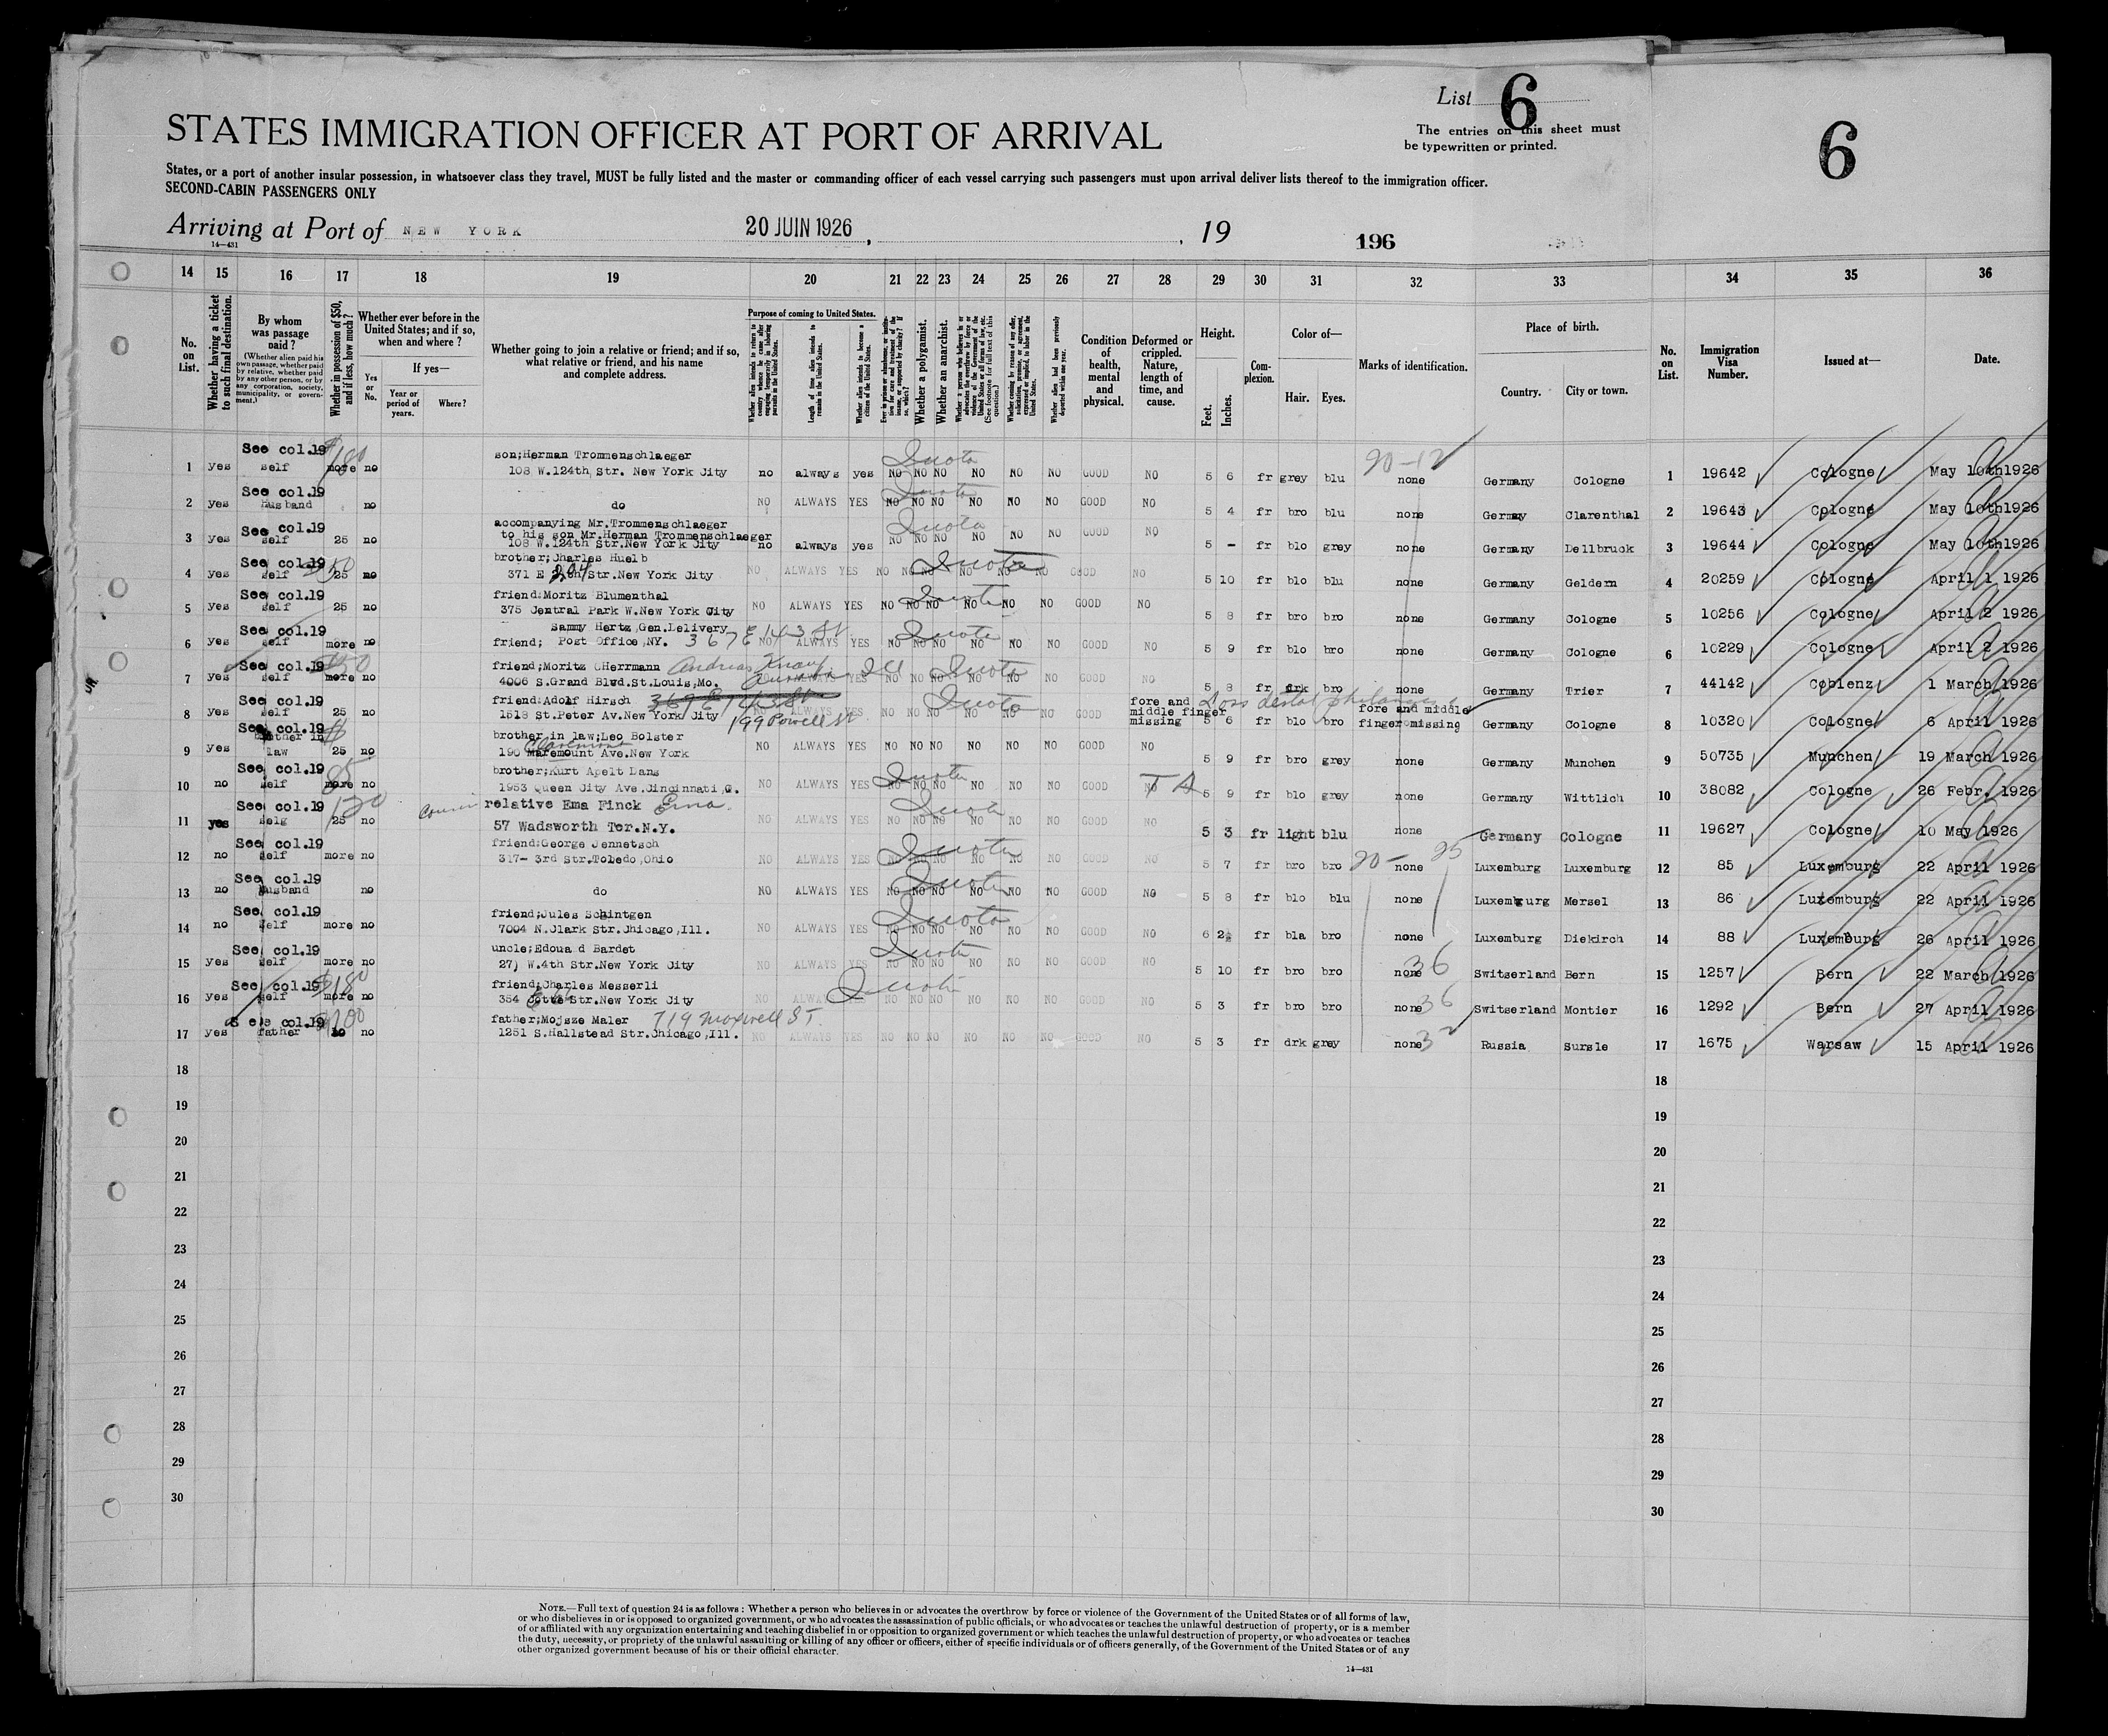 List 6
The entries on this sheet must
be typewritten or printed.
6
STATES IMMIGRATION OFFICER AT PORT OF ARRIVAL
States, or a port of another insular possession, in whatsoever class they travel, MUST be fully listed and the master or commanding officer of each vessel carrying such passengers must upon arrival deliver lists thereof to the immigration officer.
SECOND-CABIN PASSENGERS ONLY
Arriving at Port of NEW YORK 20 JUIN 1926, , 19 196
14—431
14 15 16 17 18 19 20 21 22 23 24 25 26 27 28 29 30 31 32 33 34 35 36
No. on List.
Whether having a ticket to such final destination.
By whom was passage paid?
(Whether alien paid his own passage, whether paid by relative, whether paid by any other person, or by any corporation, society, municipality, or government.)
Whether in possession of $50, and if less, how much?
Whether ever before in the United States; and if so, when and where?
If yes—
Yes or No.
Year or period of years.
Where?
Whether going to join a relative or friend; and if so, what relative or friend, and his name and complete address.
Purpose of coming to United States.
Length of time alien intends to remain in the United States.
Whether alien intends to become a citizen of the United States.
Whether a polygamist.
Whether an anarchist.
Condition of health, mental and physical.
Deformed or crippled. Nature, length of time, and cause.
Height.
Feet. Inches.
Complexion.
Color of—
Hair. Eyes.
Marks of identification.
Place of birth.
Country. City or town.
No. on List.
Immigration Visa Number.
Issued at—
Date.
See col.19 $180 son;Herman Trommenschlaeger Quota 90-12
1 yes self more no 108 W.124th Str. New York City no always yes NO NO NO NO NO NO GOOD NO 5 6 fr grey blu none Germany Cologne 1 19642 Cologne May 10th1926
See col.19 Quota
2 yes Husband no do NO ALWAYS YES NO NO NO NO NO NO GOOD NO 5 4 fr bro blu none Germay Clarenthal 2 19643 Cologne May 10th1926
See col.19 accompanying Mr.Trommenschlaeger Quota
to his son Mr.Herman Trommenschlaeger
3 yes self 25 no 108 W.124th Str.New York City no always yes NO NO NO NO NO NO GOOD NO 5 - fr blo grey none Germany Dellbruck 3 19644 Cologne May 10th1926
See col.19 brother;Charles Huelb Quota
4 yes self 25 no 371 E 204 Str.New York City NO ALWAYS YES NO NO NO NO NO NO GOOD NO 5 10 fr blo blu none Germany Geldern 4 20259 Cologne April 1 1926
See col.19 friend:Moritz Blumenthal Quota
5 yes self 25 no 375 Central Park W.New York City NO ALWAYS YES NO NO NO NO NO NO GOOD NO 5 8 fr bro bro none Germany Cologne 5 10256 Cologne April 2 1926
See col.19 Sammy Hertz,Gen.Delivery 367 E 143 St Quota
6 yes self more no friend; Post Office,NY. NO ALWAYS YES NO NO NO NO NO NO GOOD NO 5 9 fr blo bro none Germany Cologne 6 10229 Cologne April 2 1926
See col.19 friend;Moritz CHerrmann Andreas Knauf Ill Quota
7 yes self more no 4006 S.Grand Blvd.St.Louis,Mo. Aurora ALWAYS YES NO NO NO NO NO NO GOOD NO 5 8 fr drk bro none Germany Trier 7 44142 Coblenz 1 March 1926
See col.19 friend:Adolf Hirsch 367 E 143 St Quota fore and middle finger missing Loss distal phalanges
8 yes self 25 no 1518 St.Peter Av.New York City 199 Powell St NO ALWAYS YES NO NO NO NO NO NO GOOD 5 6 fr blo bro fore and middle finger missing Germany Cologne 8 10320 Cologne 6 April 1926
See col.19 brother in law;Leo Bolster
9 yes brother in law 25 no 190 Maremount Claremont Ave.New York NO ALWAYS YES NO NO NO NO NO NO GOOD NO 5 9 fr bro grey none Germany Munchen 9 50735 Munchen 19 March 1926
See col.19 85 brother;Kurt Apelt Dams Quota
10 no self more no 1953 Queen City Ave.Cincinnati,O. NO ALWAYS YES NO NO NO NO NO NO GOOD NO 5 9 fr blo grey none Germany Wittlich 10 38082 Cologne 26 Febr. 1926
See col.19 120 cousin relative Ema Finck Erna Quota
11 yes selg 25 no 57 Wadsworth Ter.N.Y. NO ALWAYS YES NO NO NO NO NO NO GOOD NO 5 3 fr light blu none Germany Cologne 11 19627 Cologne 10 May 1926
See col.19 friend:George Jennetsch Quota 90- 25
12 no self more no 317- 3rd Str.Toledo,Ohio NO ALWAYS YES NO NO NO NO NO NO GOOD NO 5 7 fr bro bro none Luxemburg Luxemburg 12 85 Luxemburg 22 April 1926
See col.19 Quota
13 no Husband no do NO ALWAYS YES NO NO NO NO NO NO GOOD NO 5 8 fr blo blu none Luxemburg Mersel 13 86 Luxemburg 22 April 1926
See col.19 friend;Jules Schintgen Quota
14 no self more no 7004 N.Clark Str.Chicago,Ill. NO ALWAYS YES NO NO NO NO NO NO GOOD NO 6 2½ fr bla bro none Luxemburg Diekirch 14 88 Luxemburg 26 April 1926
See col.19 uncle;Edoua d Bardet Quota 36
15 yes self more no 27) W.4th Str.New York City NO ALWAYS YES NO NO NO NO NO NO GOOD NO 5 10 fr bro bro none Switserland Bern 15 1257 Bern 22 March 1926
See col.19 $180 friend;Charles Messerli Quota 36
16 yes self more no 354 Str.New York City NO ALWAYS NO NO NO NO NO NO GOOD NO 5 3 fr bro bro none Switserland Montier 16 1292 Bern 27 April 1926
S ee col.19 father;Mojsze Maler 719 Maxwell ST. 32
17 yes father no 1251 S.Hallstead Str.Chicago,Ill. NO ALWAYS YES NO NO NO NO NO NO GOOD NO 5 3 fr drk grey none Russia Sursle 17 1675 Warsaw 15 April 1926
18 18
19 19
20 20
21 21
22 22
23 23
24 24
25 25
26 26
27 27
28 28
29 29
30 30
NOTE.—Full text of question 24 is as follows: Whether a person who believes in or advocates the overthrow by force or violence of the Government of the United States or of all forms of law,
or who disbelieves in or is opposed to organized government, or who advocates the assassination of public officials, or who advocates or teaches the unlawful destruction of property, or is a member
of or affiliated with any organization entertaining and teaching disbelief in or opposition to organized government or which teaches the unlawful destruction of property, or who advocates or teaches
the duty, necessity, or propriety of the unlawful assaulting or killing of any officer or officers, either of specific individuals or of officers generally, of the Government of the United States or of any
other organized government because of his or their official character.
14—431